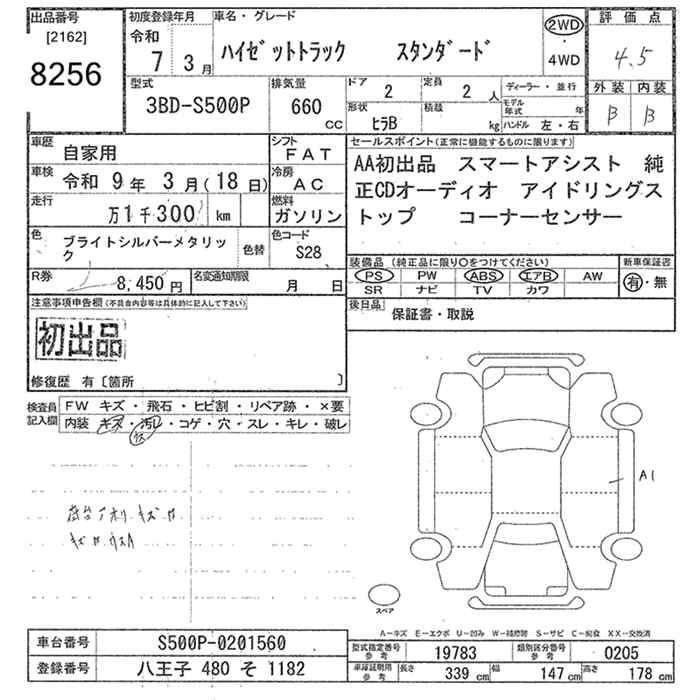 出品番号
[2162]
8256
初度登録年月
令和
7 3月
車名・グレード
ハイゼットトラック スタンダード
2WD
・
4WD
評価点
4.5
外装 内装
B B
型式
3BD-S500P
排気量
660
cc
ドア 2
定員 2 人
形状 ヒラB
積載 kg
ディーラー・並行
モデル年式 年
ハンドル 左・右
車歴 自家用
シフト FAT
車検 令和 9年 3月(18日)
冷房 AC
走行 万1千300 km
燃料 ガソリン
色 ブライトシルバーメタリック
色替
色コード S28
R券 8,450円
名変通知期限 月 日
セールスポイント(正常に機能するものに限ります)
AA初出品 スマートアシスト 純
正CDオーディオ アイドリングス
トップ コーナーセンサー
装備品 (純正品に限り○をつけてください)
PS PW ABS エアB AW
SR ナビ TV カワ
新車保証書
有・無
後日品
保証書・取説
注意事項申告欄(不具合内容等は具体的に記入して下さい)
初出品
修復歴 有〔箇所 〕
検査員記入欄
FW キズ・飛石・ヒビ割・リペア跡・×要
内装 キズ・汚レ・コゲ・穴・スレ・キレ・破レ
A1
スペア
A-キズ E-エクボ U-凹み W-補修跡 S-サビ C-腐食 XX-交換済
車台番号 S500P-0201560
登録番号 八王子 480 そ 1182
型式指定番号参考 19783
類別区分番号参考 0205
車庫証明用参考 長さ 339 cm 幅 147 cm 高さ 178 cm